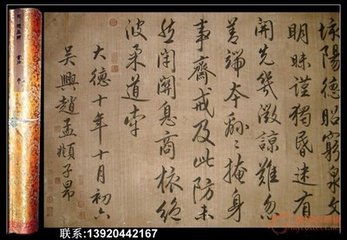 陽德昭窮泉文
明昧謹獨昏迷有
開先幾微諒難忽
善端本綿〻掩身
事齋戒及此防未
然閉關息商旅絕
彼柔道牽
大德十年十月初六
吳興趙孟頫子昂
联系:13920442167